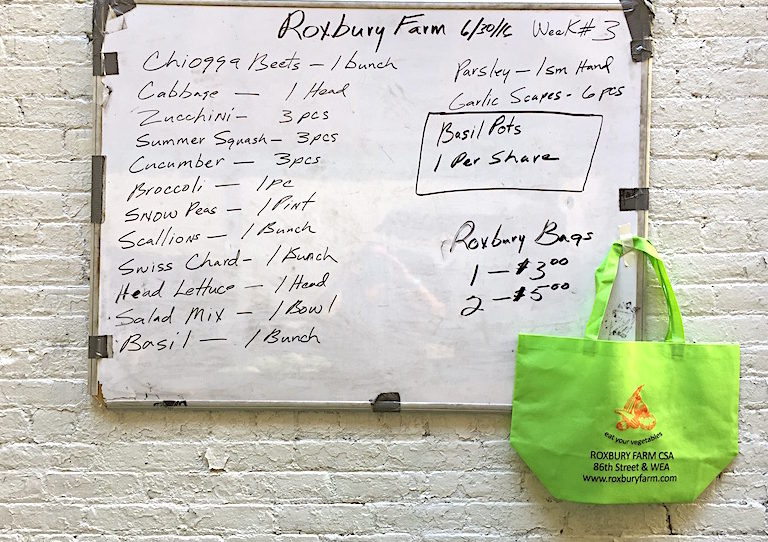 Roxbury Farm 6/30/16 Week #3
Chiogga Beets - 1 bunch
Cabbage - 1 Head
Zucchini - 3 pcs
Summer Squash - 3pcs
Cucumber - 3pcs
Broccoli - 1pc
Snow Peas - 1 Pint
Scallions - 1 Bunch
Swiss Chard - 1 Bunch
Head Lettuce - 1 Head
Salad Mix - 1 Bowl
Basil - 1 Bunch
Parsley - 1 sm Hand
Garlic Scapes - 6 pcs
Basil Pots
1 Per Share
Roxbury Bags
1 - $3.00
2 - $5.00
eat your vegetables
ROXBURY FARM CSA
86th Street & WEA
www.roxburyfarm.com